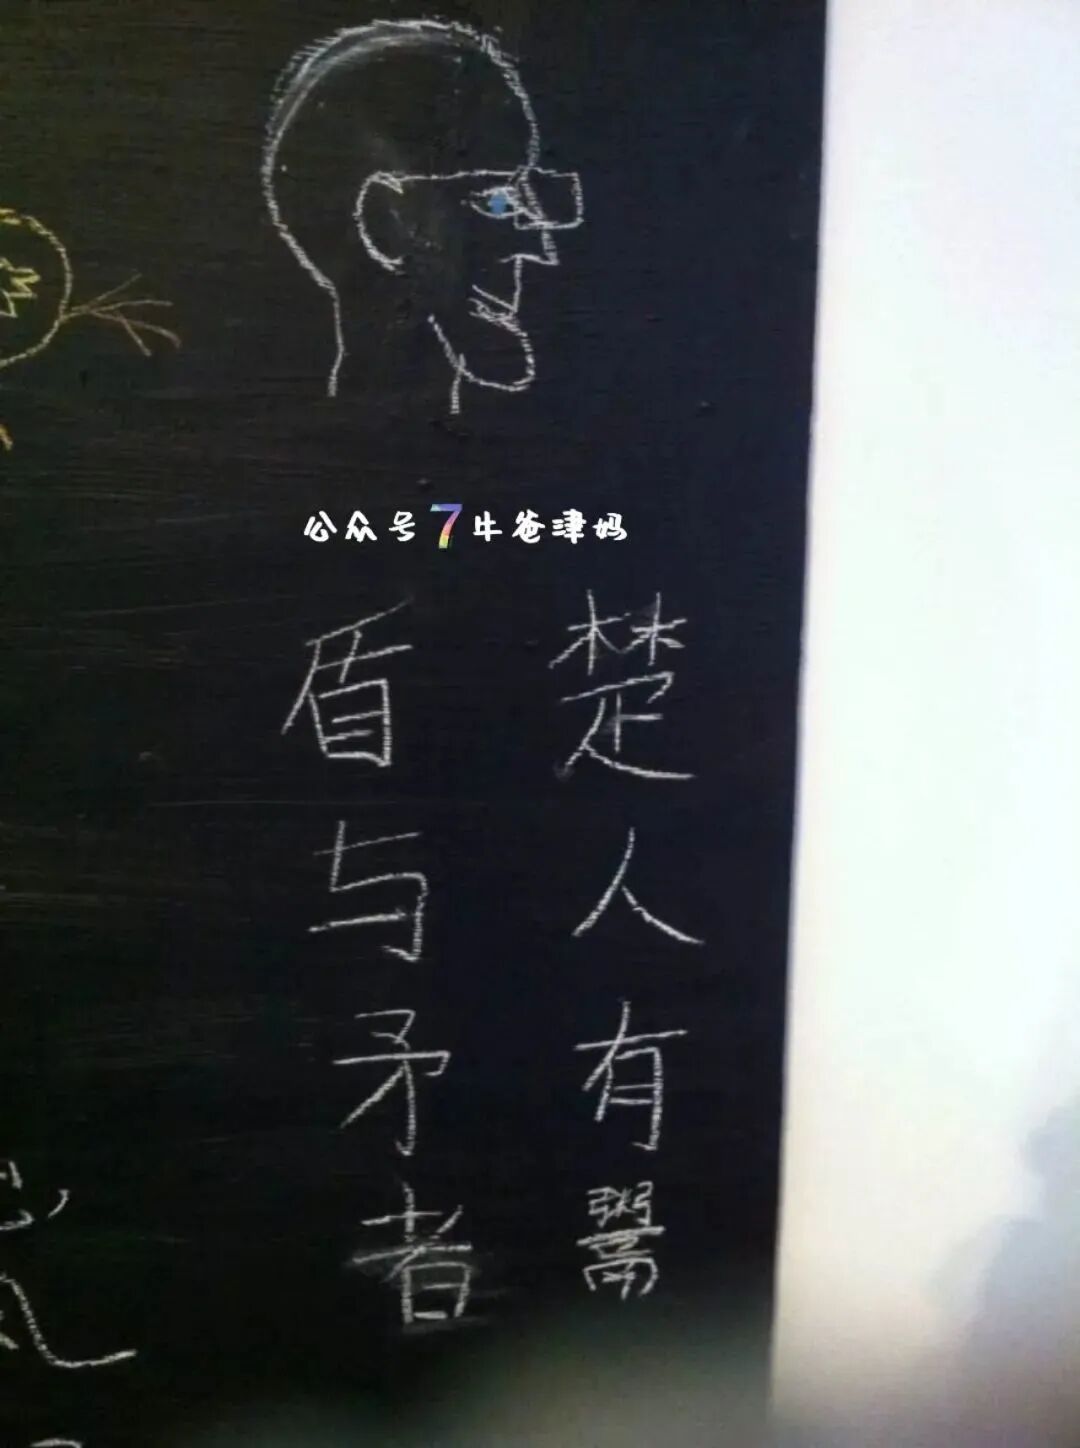 公众号7牛爸津妈
楚人有鬻
盾与矛者